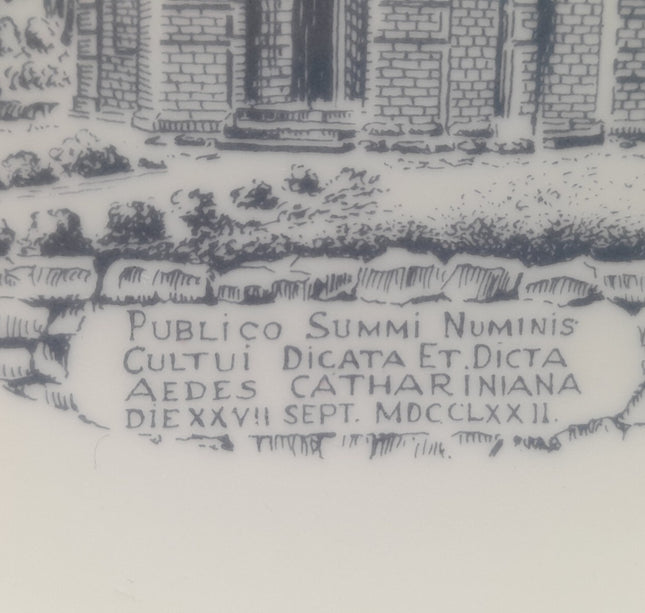 PUBLICO SUMMI NUMINIS
CULTUI DICATA ET.DICTA
AEDES CATHARINIANA
DIE XXVII SEPT. MDCCLXXII.